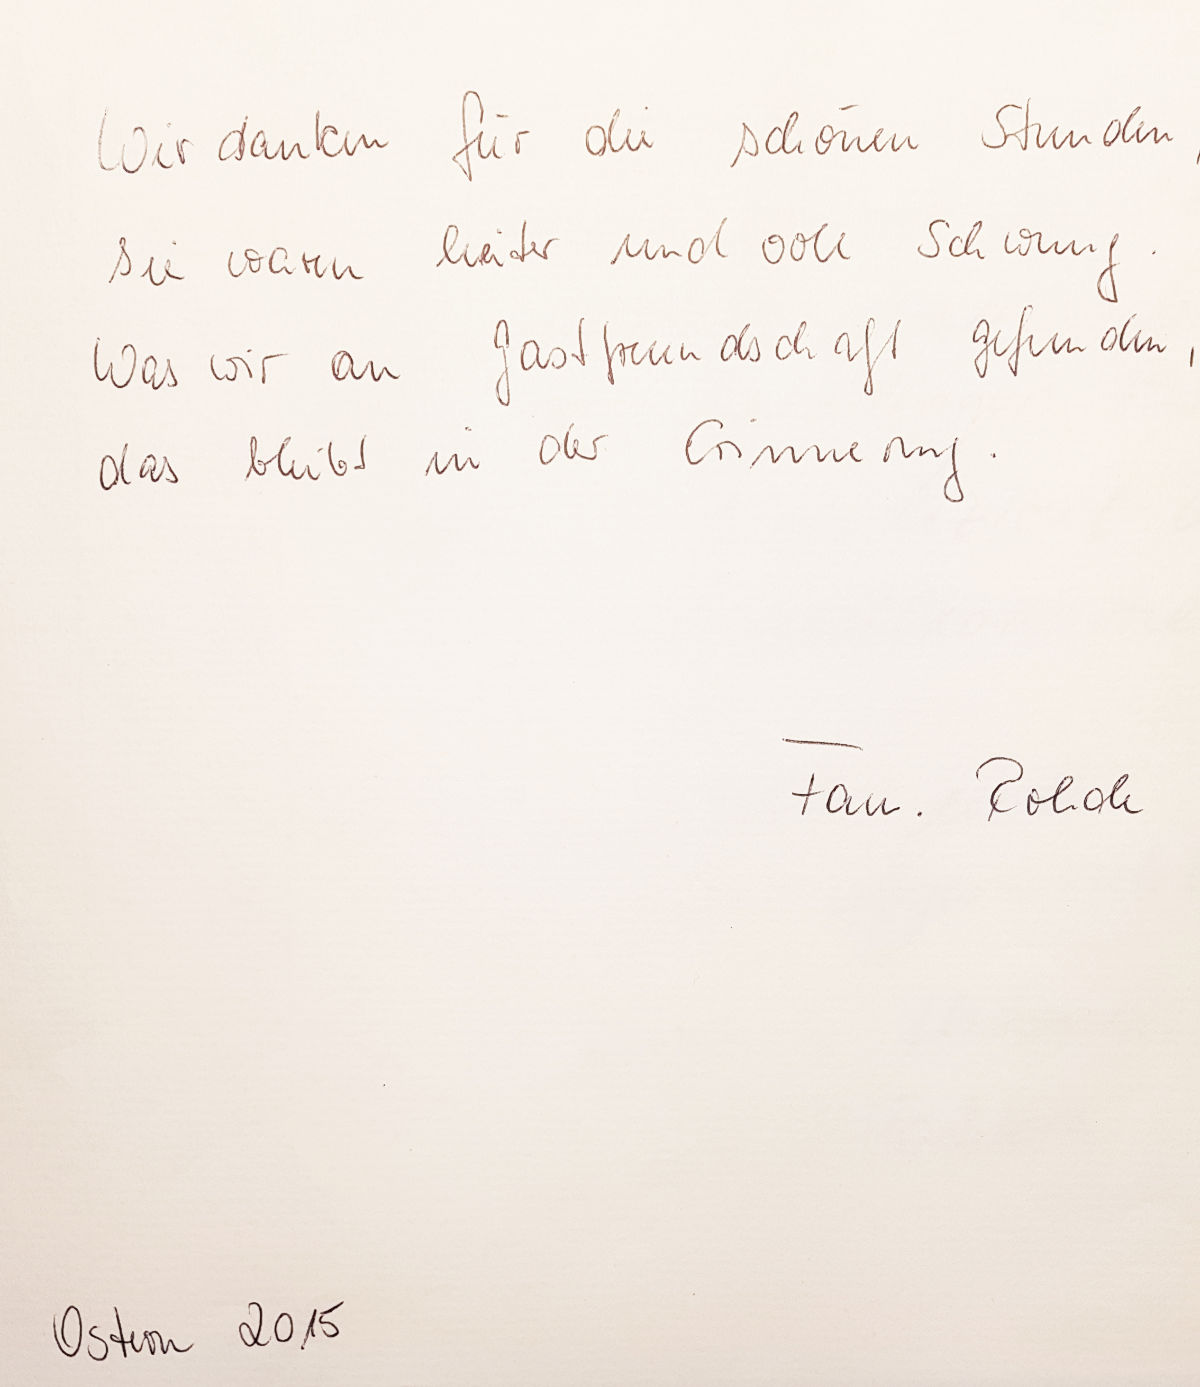 Wir danken für die schönen Stunden,
sie waren heiter und voll Schwung.
Was wir an Gastfreundschaft gefunden,
das bleibt in der Erinnerung.
Fam. Rohde
Ostern 2015